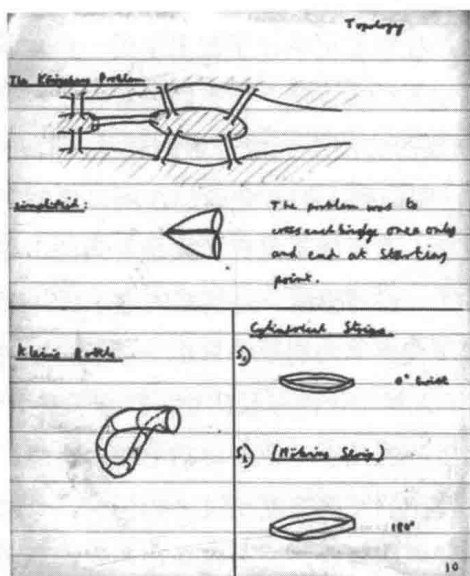 Topology
The Königsberg Problem
simplified:
The problem was to
cross each bridge once only
and end at starting
point.
Klein's Bottle
Cylindrical Strips
S₁)
0° twist
S₂) (Möbius Strip)
180°
10